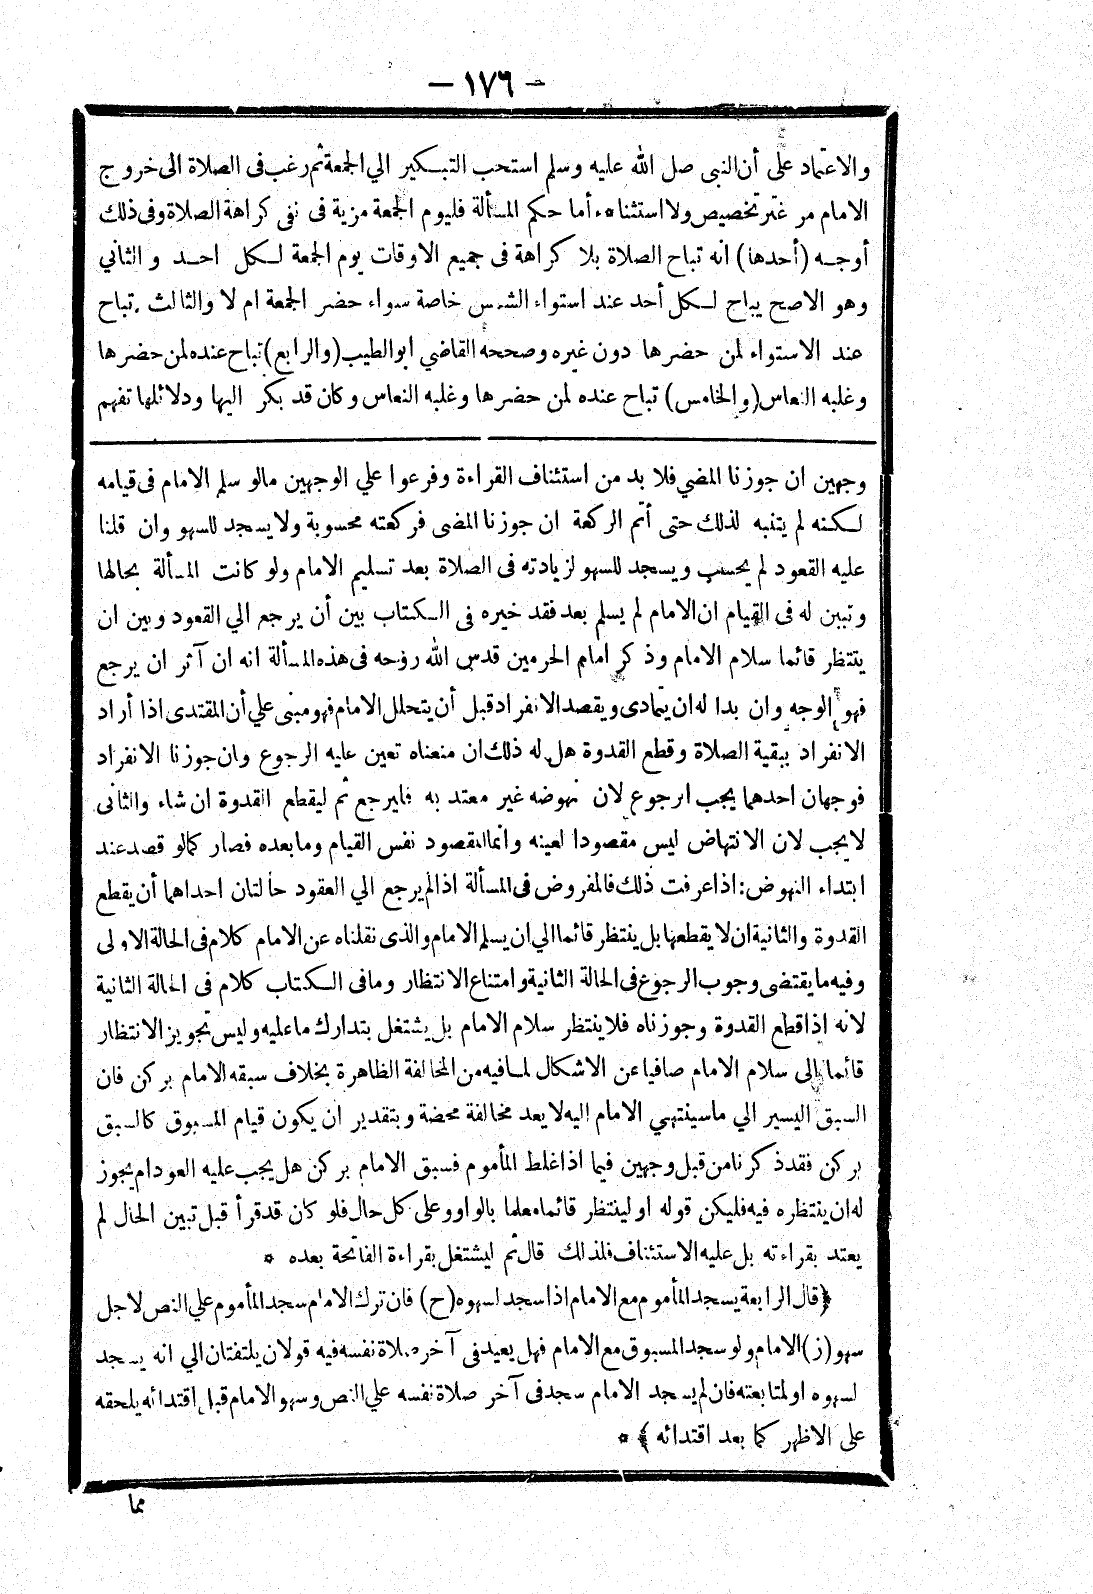 — ١٧٦ —
والاعتماد على أن النبى صل الله عليه وسلم استحب التبكير الي الجمعة ثم رغب فى الصلاة الى خروج
الامام من غير تخصيص ولا استثناء، أما حكم المسألة فليوم الجمعة مزية فى نفى كراهة الصلاة وفى ذلك
أوجه (أحدها) انه تباح الصلاة بلا كراهة فى جميع الاوقات يوم الجمعة لكل احد والثاني
وهو الاصح يباح لكل أحد عند استواء الشمس خاصة سواء حضر الجمعة ام لا والثالث تباح
عند الاستواء لمن حضرها دون غيره وصححه القاضي ابو الطيب (والرابع) تباح عنده لمن حضرها
وغلبه النعاس (والخامس) تباح عنده لمن حضرها وغلبه النعاس وكان قد بكر اليها ودلائلها تفهم
وجهين ان جوزنا المضي فلا بد من استئناف القراءة وفرعوا علي الوجهين مالو سلم الامام فى قيامه
لكنه لم يتنبه لذلك حتى أتم الركعة ان جوزنا المضى فركعته محسوبة ولا يسجد للسهو وان قلنا
عليه القعود لم يحسب ويسجد للسهو لزيادته فى الصلاة بعد تسليم الامام ولو كانت المسألة بحالها
وتبين له فى القيام ان الامام لم يسلم بعد فقد خيره فى الكتاب بين أن يرجع الي القعود وبين ان
ينتظر قائما سلام الامام وذكر امام الحرمين قدس الله روحه فى هذه المسألة انه ان آثر ان يرجع
فهو الوجه وان بدا له ان يتمادى ويقصد الانفراد قبل أن يتحلل الامام فهو مبنى علي أن المقتدى اذا أراد
الانفراد ببقية الصلاة وقطع القدوة هل له ذلك ان منعناه تعين عليه الرجوع وان جوزنا الانفراد
فوجهان احدهما يجب الرجوع لان نهوضه غير معتد به فليرجع ثم ليقطع القدوة ان شاء والثانى
لا يجب لان الانتهاض ليس مقصودا لعينه وانما المقصود نفس القيام وما بعده فصار كما لو قصد عند
ابتداء النهوض: اذا عرفت ذلك فالمفروض فى المسألة اذا لم يرجع الي العقود حالتان احداهما أن يقطع
القدوة والثانية ان لا يقطعها بل ينتظر قائما الي ان يسلم الامام والذى نقلناه عن الامام كلام فى الحالة الاولى
وفيه ما يقتضى وجوب الرجوع فى الحالة الثانية وامتناع الانتظار وما فى الكتاب كلام فى الحالة الثانية
لانه اذا قطع القدوة وجوزناه فلا ينتظر سلام الامام بل يشتغل بتدارك ما عليه وليس تجويز الانتظار
قائما الى سلام الامام صافيا عن الاشكال لما فيه من المخالفة الظاهرة بخلاف سبقه الامام بركن فان
السبق اليسير الي ما سينتهي الامام اليه لا يعد مخالفة محضة وبتقدير ان يكون قيام المسبوق كالسبق
بركن فقد ذكرنا من قبل وجهين فيما اذا غلط المأموم فسبق الامام بركن هل يجب عليه العود ام يجوز
له ان ينتظره فيه فليكن قوله او لينتظر قائما معلما بالواو وعلى كل حال فلو كان قد قرأ قبل تبين الحال لم
يعتد بقراءته بل عليه الاستئناف فلذلك قال ثم ليشتغل بقراءة الفاتحة بعده *
﴿قال الرابعة يسجد المأموم مع الامام اذا سجد لسهوه (ح) فان ترك الامام سجد المأموم علي النص لاجل
سهو (ز) الامام ولو سجد المسبوق مع الامام فهل يعيد فى آخر صلاة نفسه فيه قولان يلتفتان الي انه يسجد
لسهوه او لمتابعته فان لم يسجد الامام سجد فى آخر صلاة نفسه علي النص وسهو الامام قبل اقتدائه يلحقه
على الاظهر كما بعد اقتدائه ﴾ *
مما